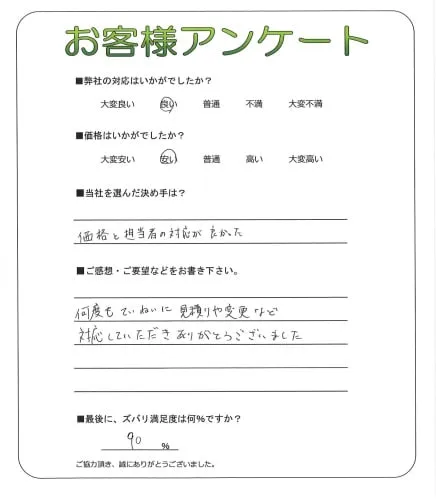 お客様アンケート
■弊社の対応はいかがでしたか？
大変良い 良い 普通 不満 大変不満
■価格はいかがでしたか？
大変安い 安い 普通 高い 大変高い
■当社を選んだ決め手は？
価格と担当者の対応が良かった
■ご感想・ご要望などをお書き下さい。
何度もていねいに見積りや変更など
対応していただきありがとうございました
■最後に、ズバリ満足度は何%ですか？
90 %
ご協力頂き、誠にありがとうございました。